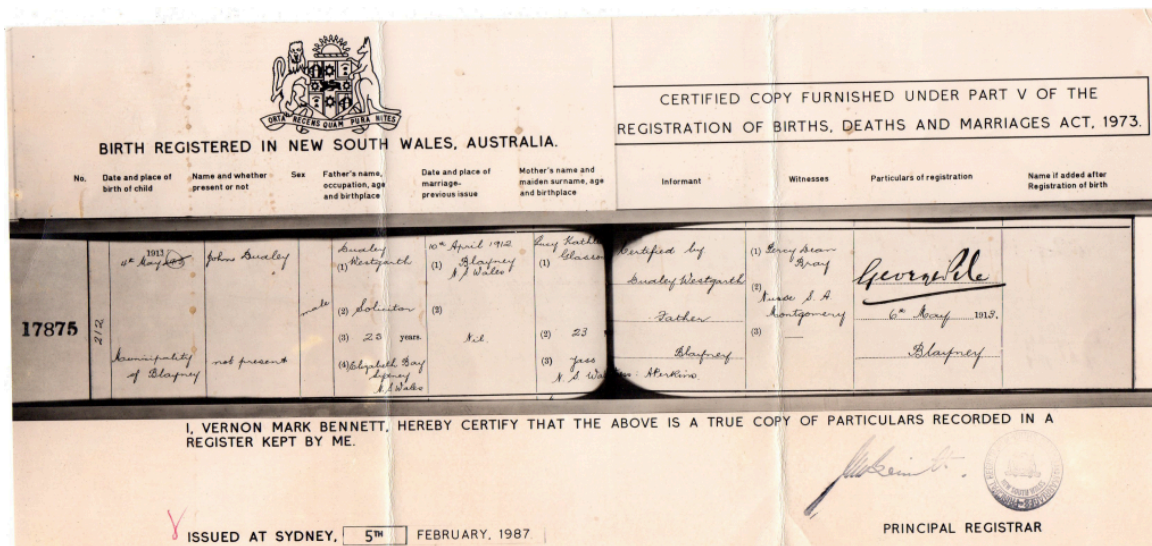 ORTA RECENS QUAM PURA NITES
BIRTH REGISTERED IN NEW SOUTH WALES, AUSTRALIA.
CERTIFIED COPY FURNISHED UNDER PART V OF THE
REGISTRATION OF BIRTHS, DEATHS AND MARRIAGES ACT, 1973.
No.
Date and place of
birth of child
Name and whether
present or not
Sex
Father's name,
occupation, age
and birthplace
Date and place of
marriage-
previous issue
Mother's name and
maiden surname, age
and birthplace
Informant
Witnesses
Particulars of registration
Name if added after
Registration of birth
17875
212
1913
4th May
Municipality
of Blayney
Johns Dudley
not present
male
Dudley
(1) Westgarth
(2) Solicitor
(3) 23 years.
(4) Elizabeth Bay
Sydney
N.S Wales
10th April 1912
(1) Blayney
N.S Wales
(2)
Nil.
Lucy Kathl
(1) Glasson
(2) 23
(3) Yass
N. S. Wa
Certified by
Dudley Westgarth
Father
Blayney
: A Perkins.
(1) Percy Dean
Bray
(2)
Nurse S. A
Montgomery
(3) —
George Pile
6th May 1913.
Blayney
I, VERNON MARK BENNETT, HEREBY CERTIFY THAT THE ABOVE IS A TRUE COPY OF PARTICULARS RECORDED IN A
REGISTER KEPT BY ME.
ISSUED AT SYDNEY, 5TH FEBRUARY, 1987
PRINCIPAL REGISTRAR